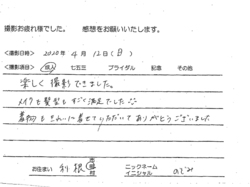 撮影お疲れ様でした。 感想をお願いいたします。
<撮影日時> 2020年 4月 12日(日)
<撮影項目> 成人 七五三 ブライダル 記念 その他
楽しく撮影できました。
メイクも髪型もすごく満足でした
着物もきれいに着せていただいてありがとうございました
お住まい 利根 ニックネーム
イニシャル のぞみ